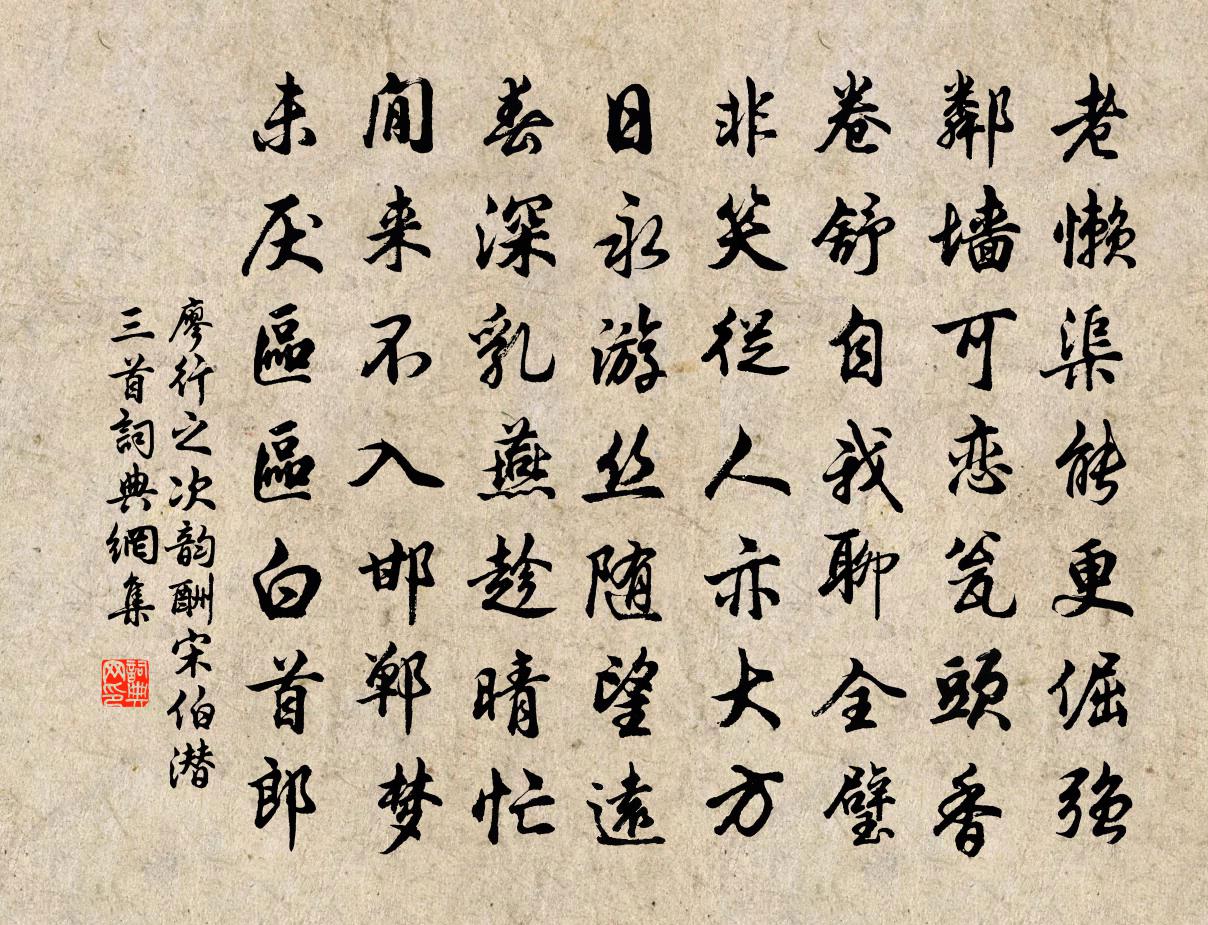 老懒渠能更倔强
鄰墙可恋瓮頭香
卷舒自我聊全璧
非笑從人亦大方
日永游丝随望遠
春深乳燕趁晴忙
閒来不入邯郸梦
未厌區區白首郎
廖行之次韵酬宋伯潜
三首詞典網集
詞典网印